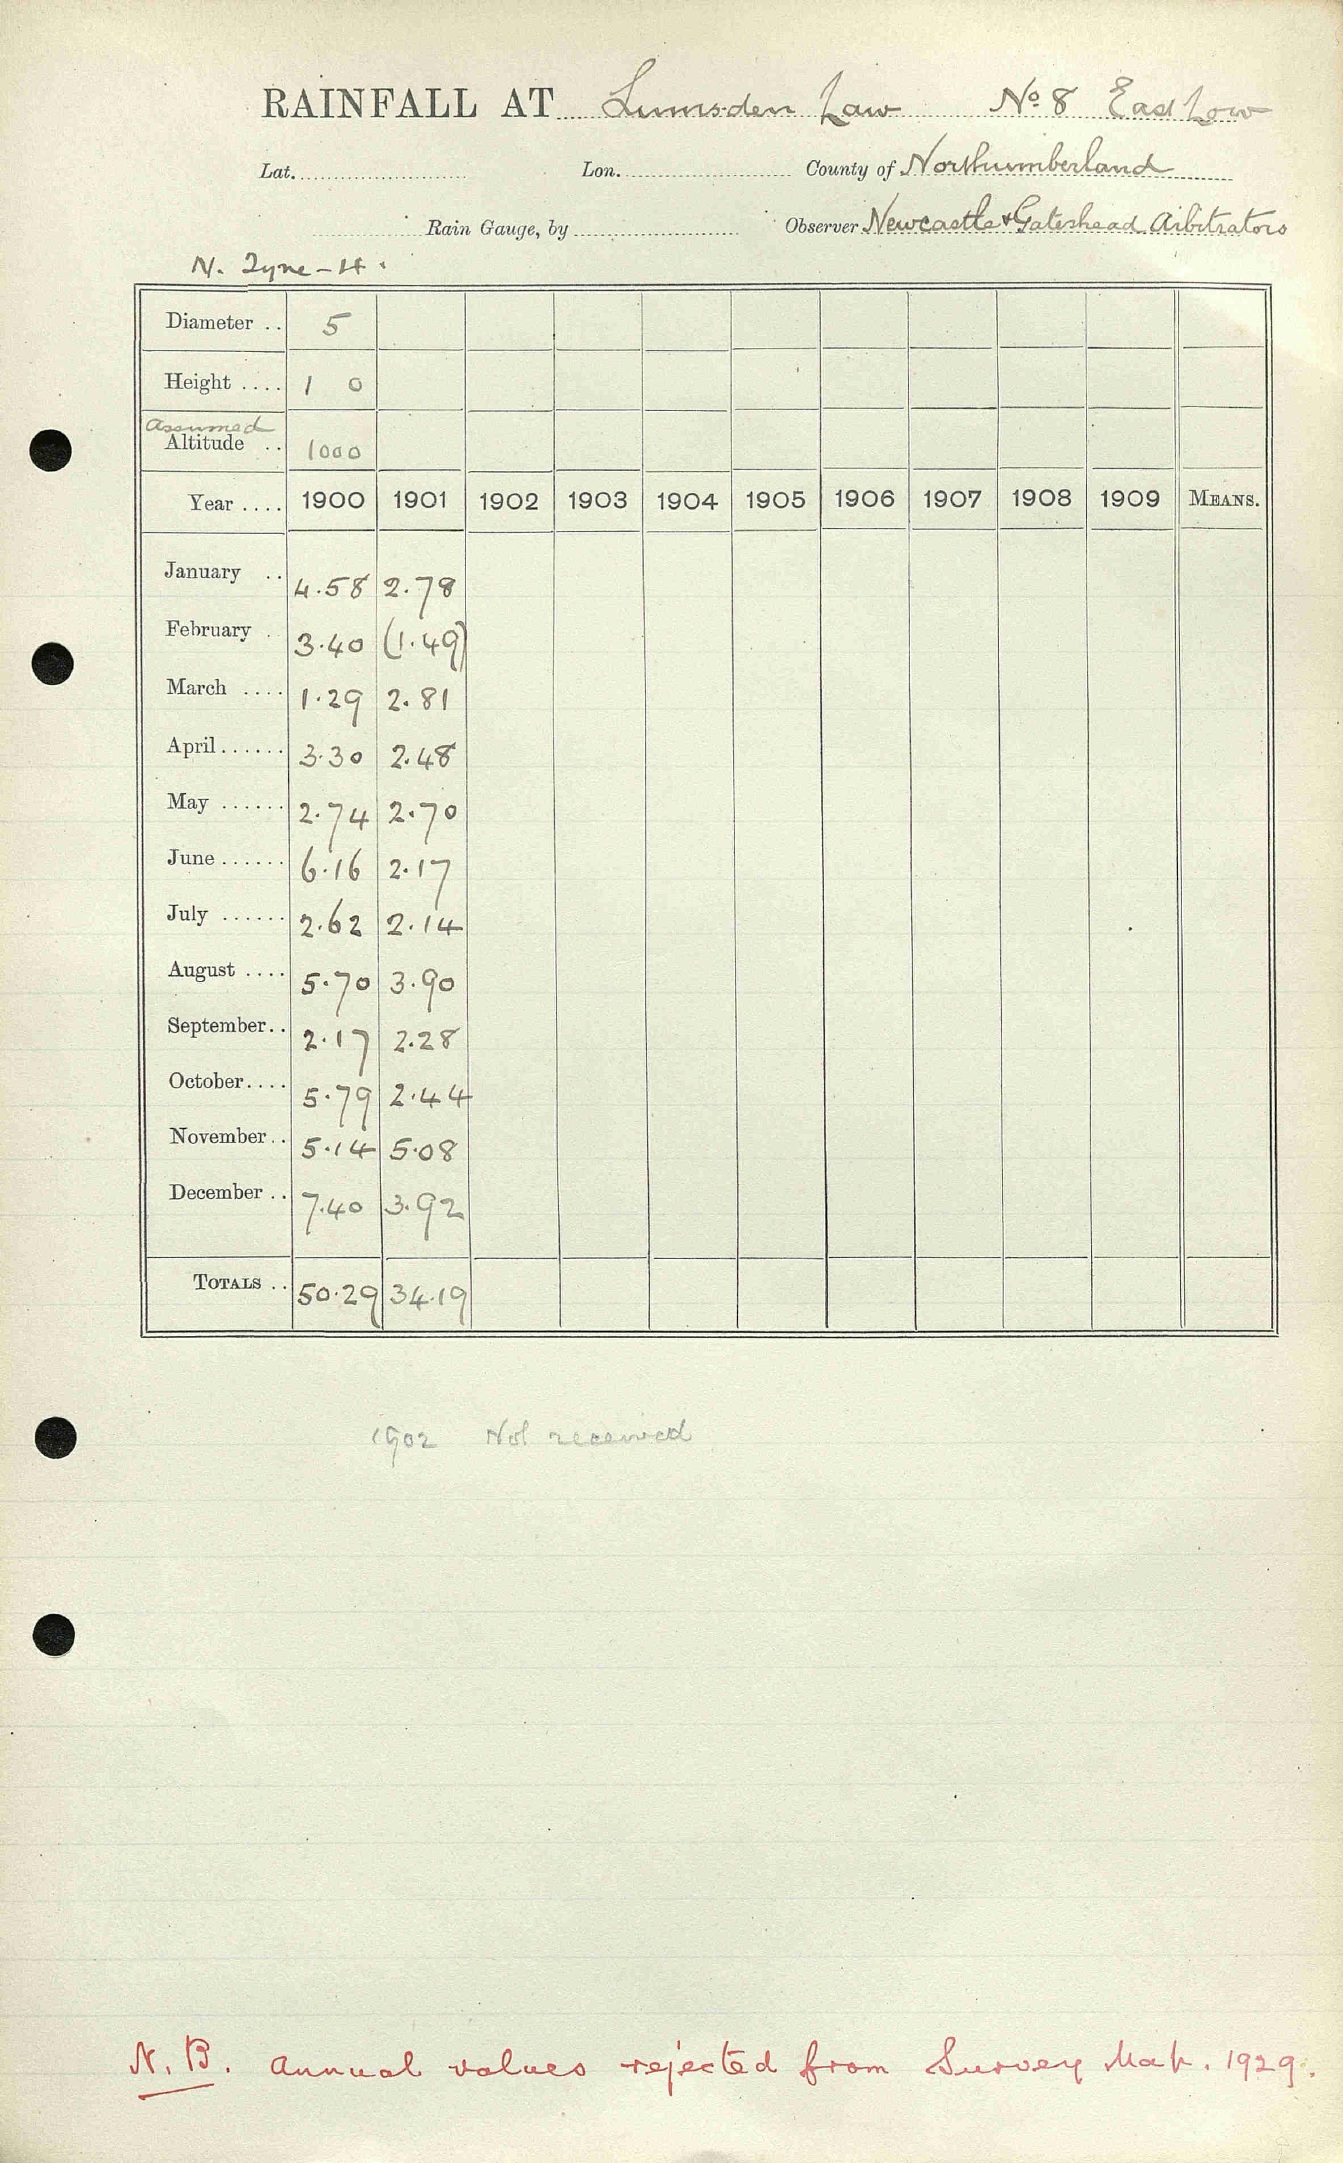 RAINFALL AT Lumsden Law No. 8 East Low
Lat. Lon. County of Northumberland
Rain Gauge, by Observer Newcastle & Gateshead Arbitrators
N. Tyne - H.
Diameter .. 5
Height .... 1 0
assumed
Altitude .. 1000
Year .... 1900 1901 1902 1903 1904 1905 1906 1907 1908 1909 MEANS.
January .. 4.58 2.78
February . 3.40 (1.49)
March .... 1.29 2.81
April...... 3.30 2.48
May ...... 2.74 2.70
June...... 6.16 2.17
July ...... 2.62 2.14
August .... 5.70 3.90
September.. 2.17 2.28
October.... 5.79 2.44
November.. 5.14 5.08
December .. 7.40 3.92
TOTALS .. 50.29 34.19
1902 Not received
N.B. Annual values rejected from Survey Map. 1929.